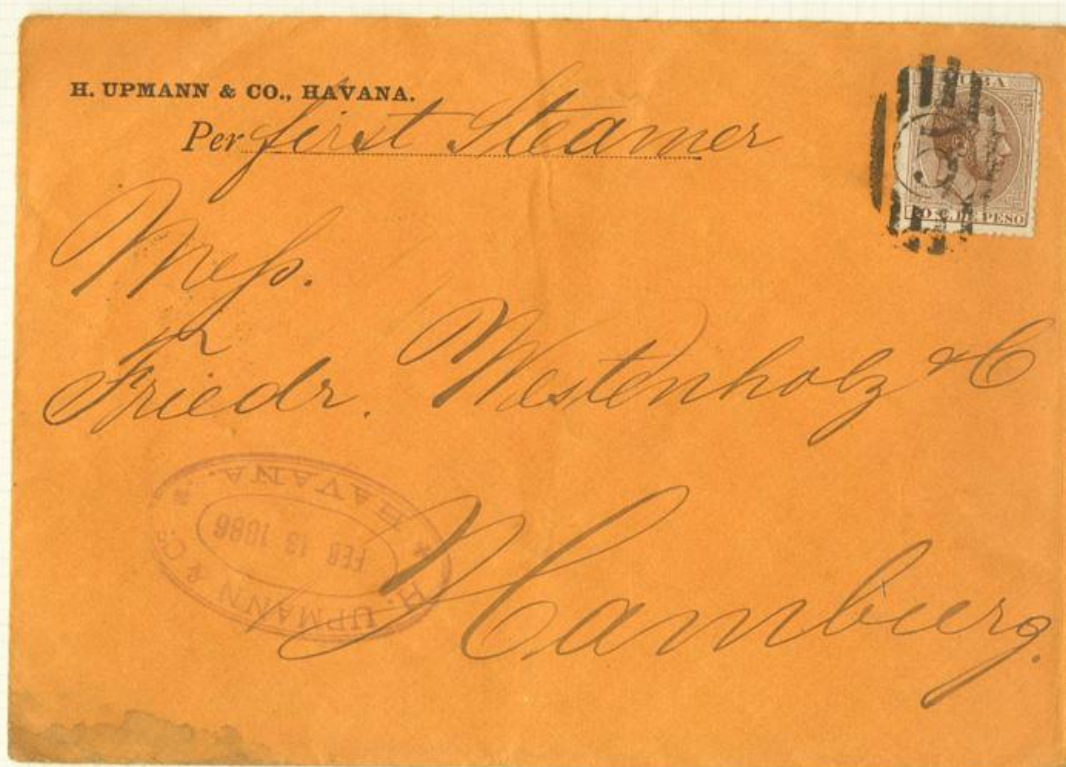 H. UPMANN & CO., HAVANA.
Per first Steamer
CUBA
10 C. DE PESO
Mess.
Friedr. Westenholz & C
Hamburg.
H. UPMANN & Co.
FEB 13 1886
HAVANA.